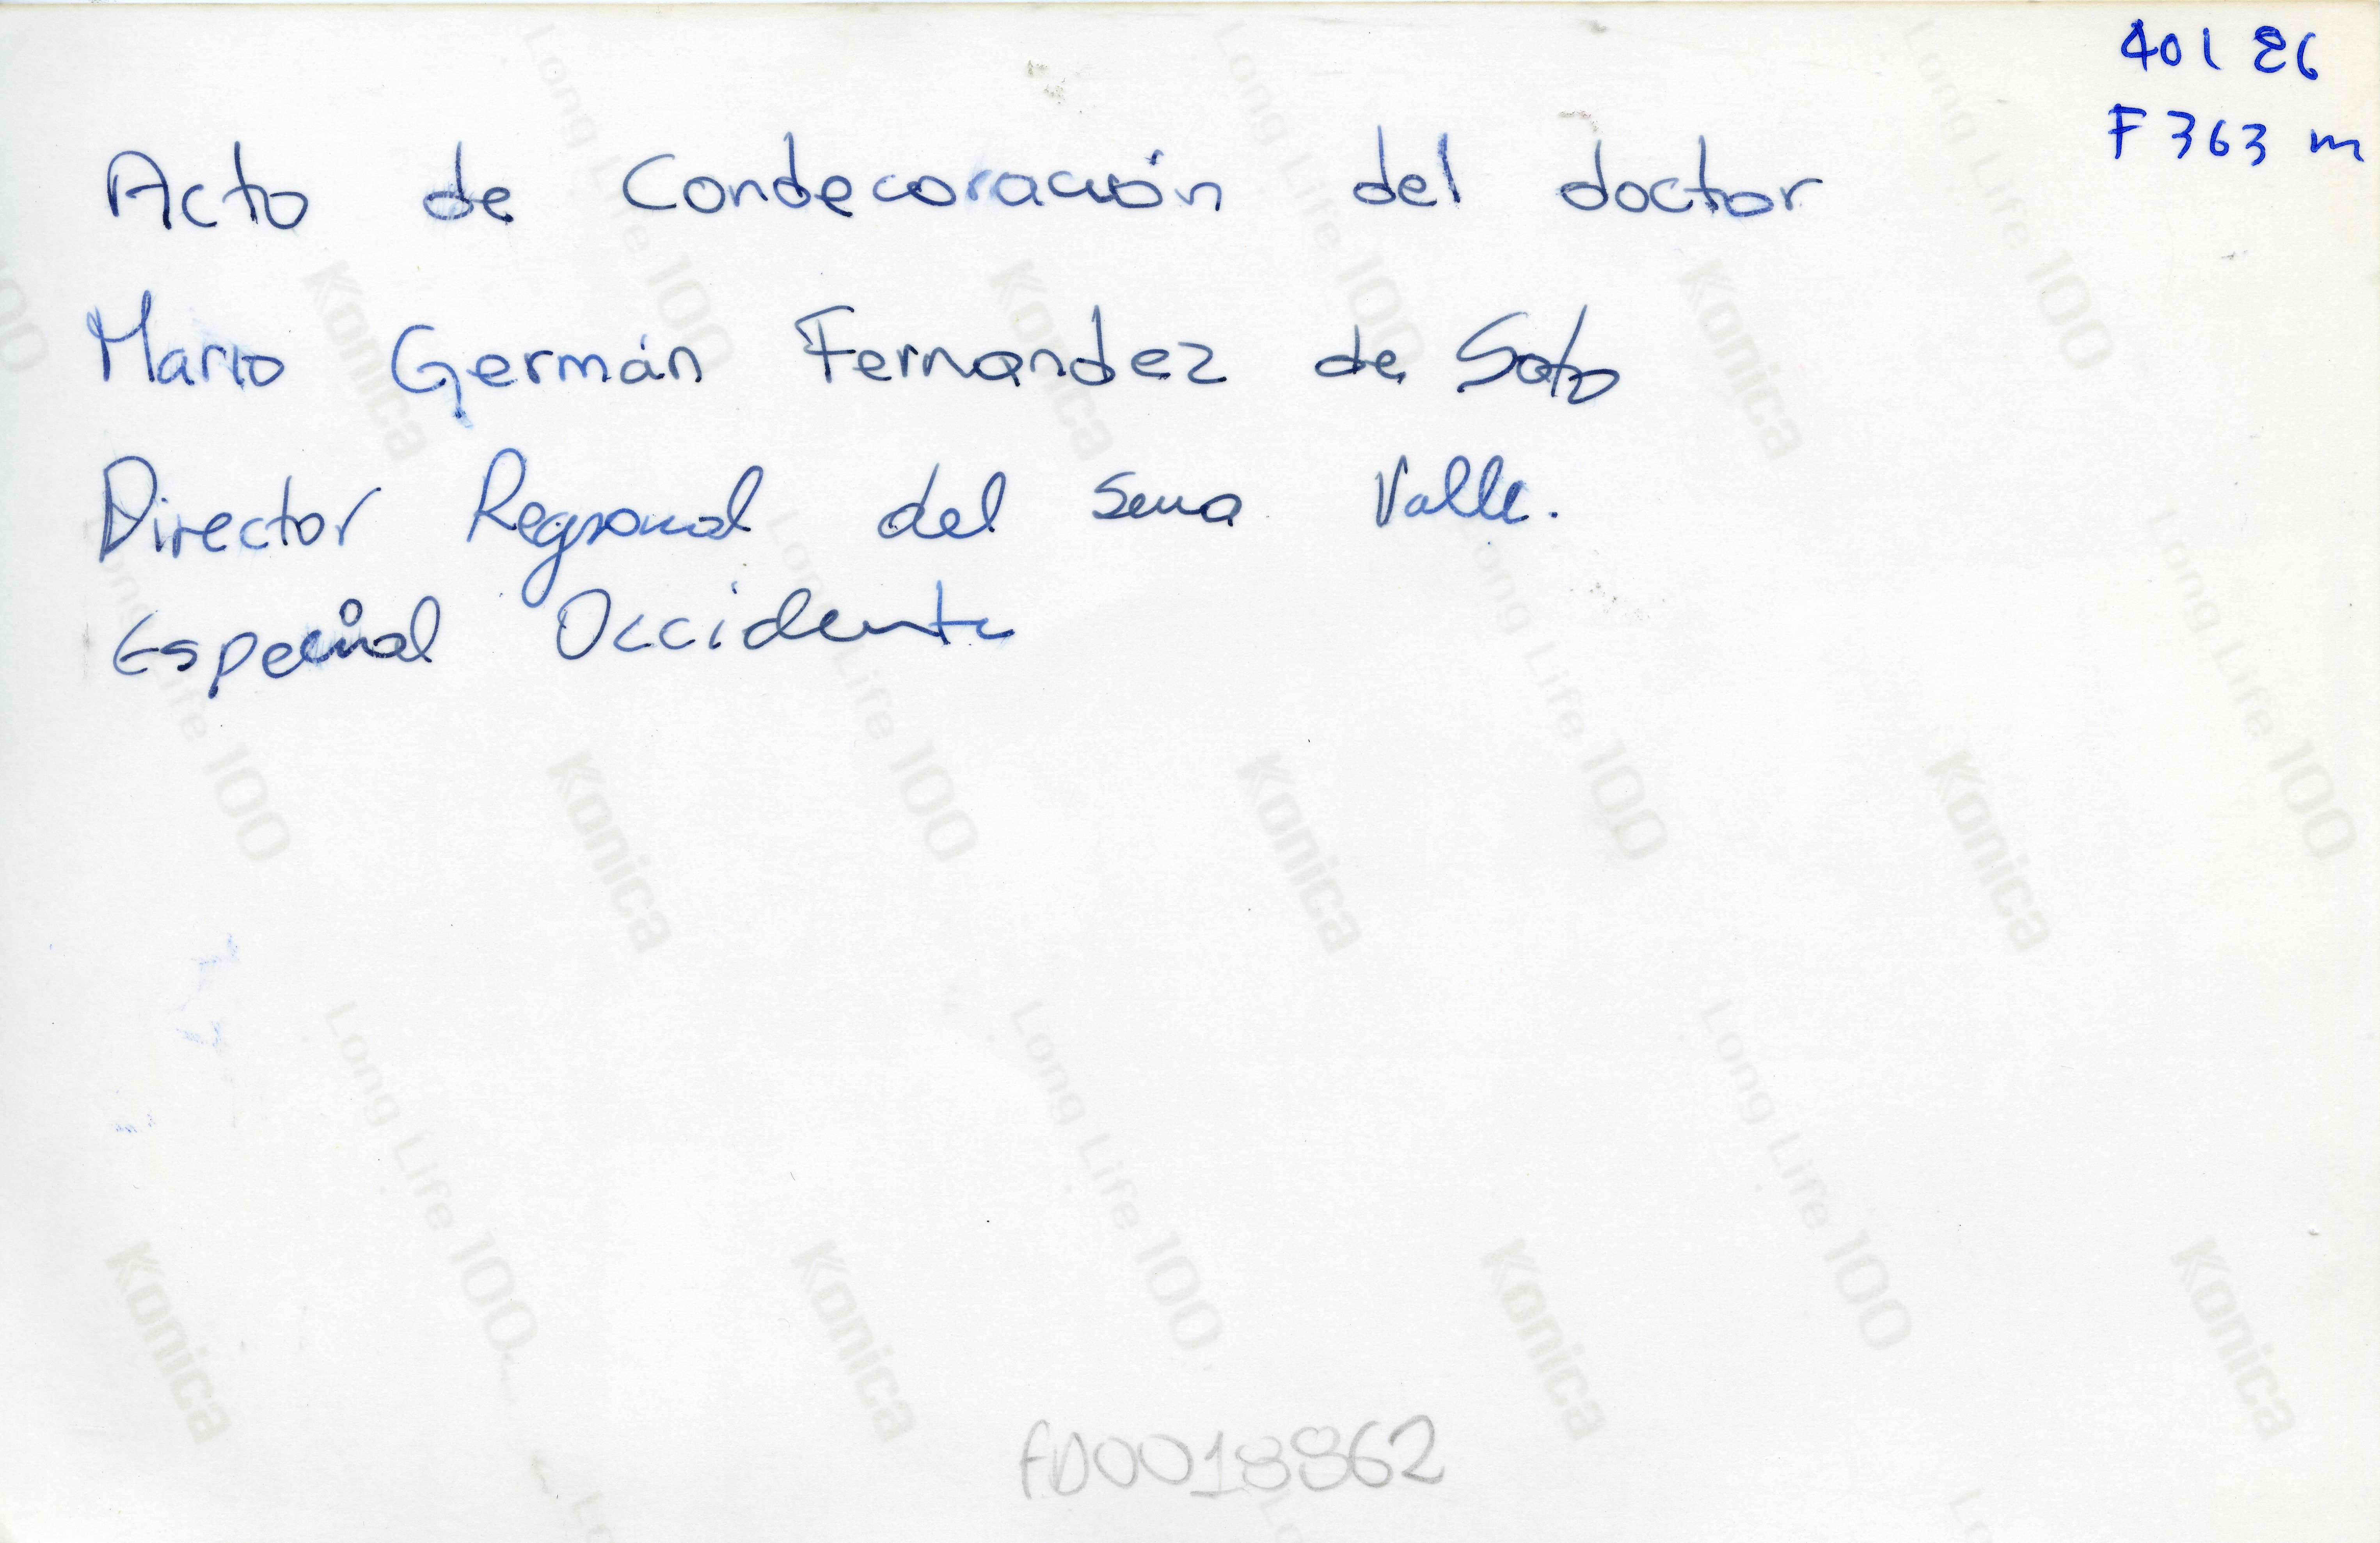 401 86
F 363 m
Acto de Condecoración del doctor
Mario Germán Fernandez de Soto
Director Regional del Sena Valle.
Especial Occidente
FD0018862
Konica
Long Life 100